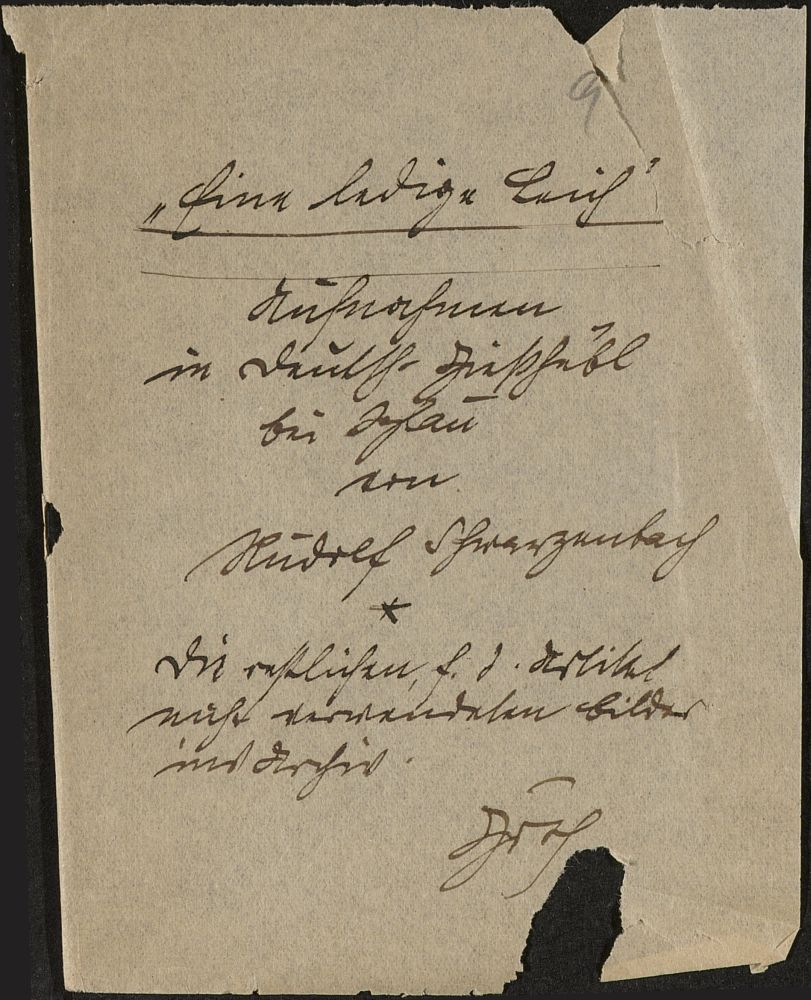 9
„Eine ledige Leich"
Aufnahmen
in Deutsch-Gießhübl
bei Iglau
von
Rudolf Schwarzenbach
*
Die restlichen, f. d. Artikel
nicht verwendeten Bilder
ins Archiv.